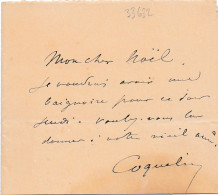 33652
Mon cher Noël.
je voudrais avoir une
baignoire pour ce soir
jeudi. voulez-vous la
donner à votre vieil ami
Coquelin